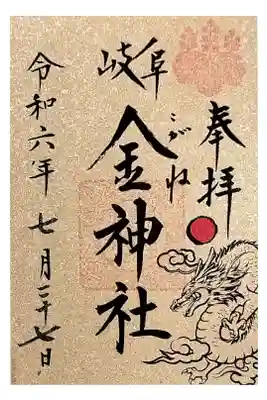 奉拝
岐阜
こがね
金神社
令和六年 七月二十七日